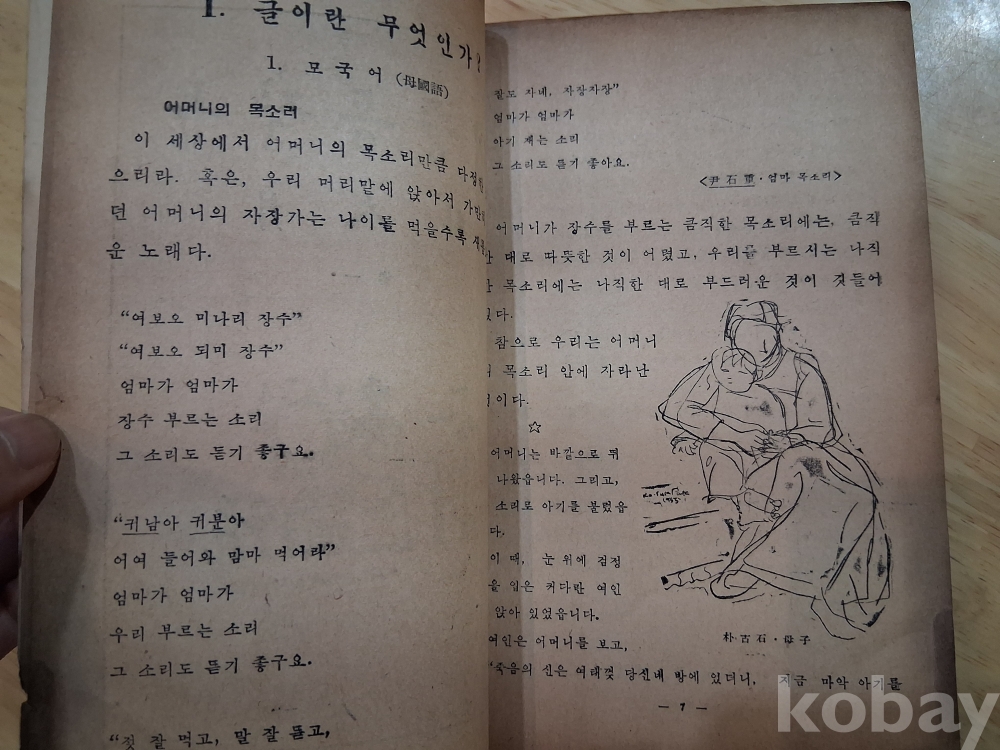 I. 글이란 무엇인가?
1. 모국어 (母國語)
어머니의 목소리
이 세상에서 어머니의 목소리만큼 다정
으리라. 혹은, 우리 머리맡에 앉아서 가만
던 어머니의 자장가는 나이를 먹을수록
운 노래다.
“여보오 미나리 장수”
“여보오 되미 장수”
엄마가 엄마가
장수 부르는 소리
그 소리도 듣기 좋구요.
“귀남아 귀분아
어여 들어와 맘마 먹어라”
엄마가 엄마가
우리 부르는 소리
그 소리도 듣기 좋구요.
“젖 잘 먹고, 말 잘 듣고,
잘도 자네, 자장자장”
엄마가 엄마가
아기 재는 소리
그 소리도 듣기 좋아요.
<尹石重·엄마 목소리>
어머니가 장수를 부르는 큼직한 목소리에는, 큼직
대로 따뜻한 것이 어렸고, 우리를 부르시는 나직
목소리에는 나직한 대로 부드러운 것이 깃들어
다.
참으로 우리는 어머니
목소리 안에 자라난
이다.
☆
어머니는 바깥으로 뛰
나왔읍니다. 그리고,
소리로 아기를 불렀읍
다.
이 때, 눈 위에 검정
을 입은 커다란 여인
앉아 있었읍니다.
여인은 어머니를 보고,
“죽음의 신은 여태껏 당신네 방에 있더니, 지금 마악 아기를
1953
朴古石·母子
— 7 —
kobay